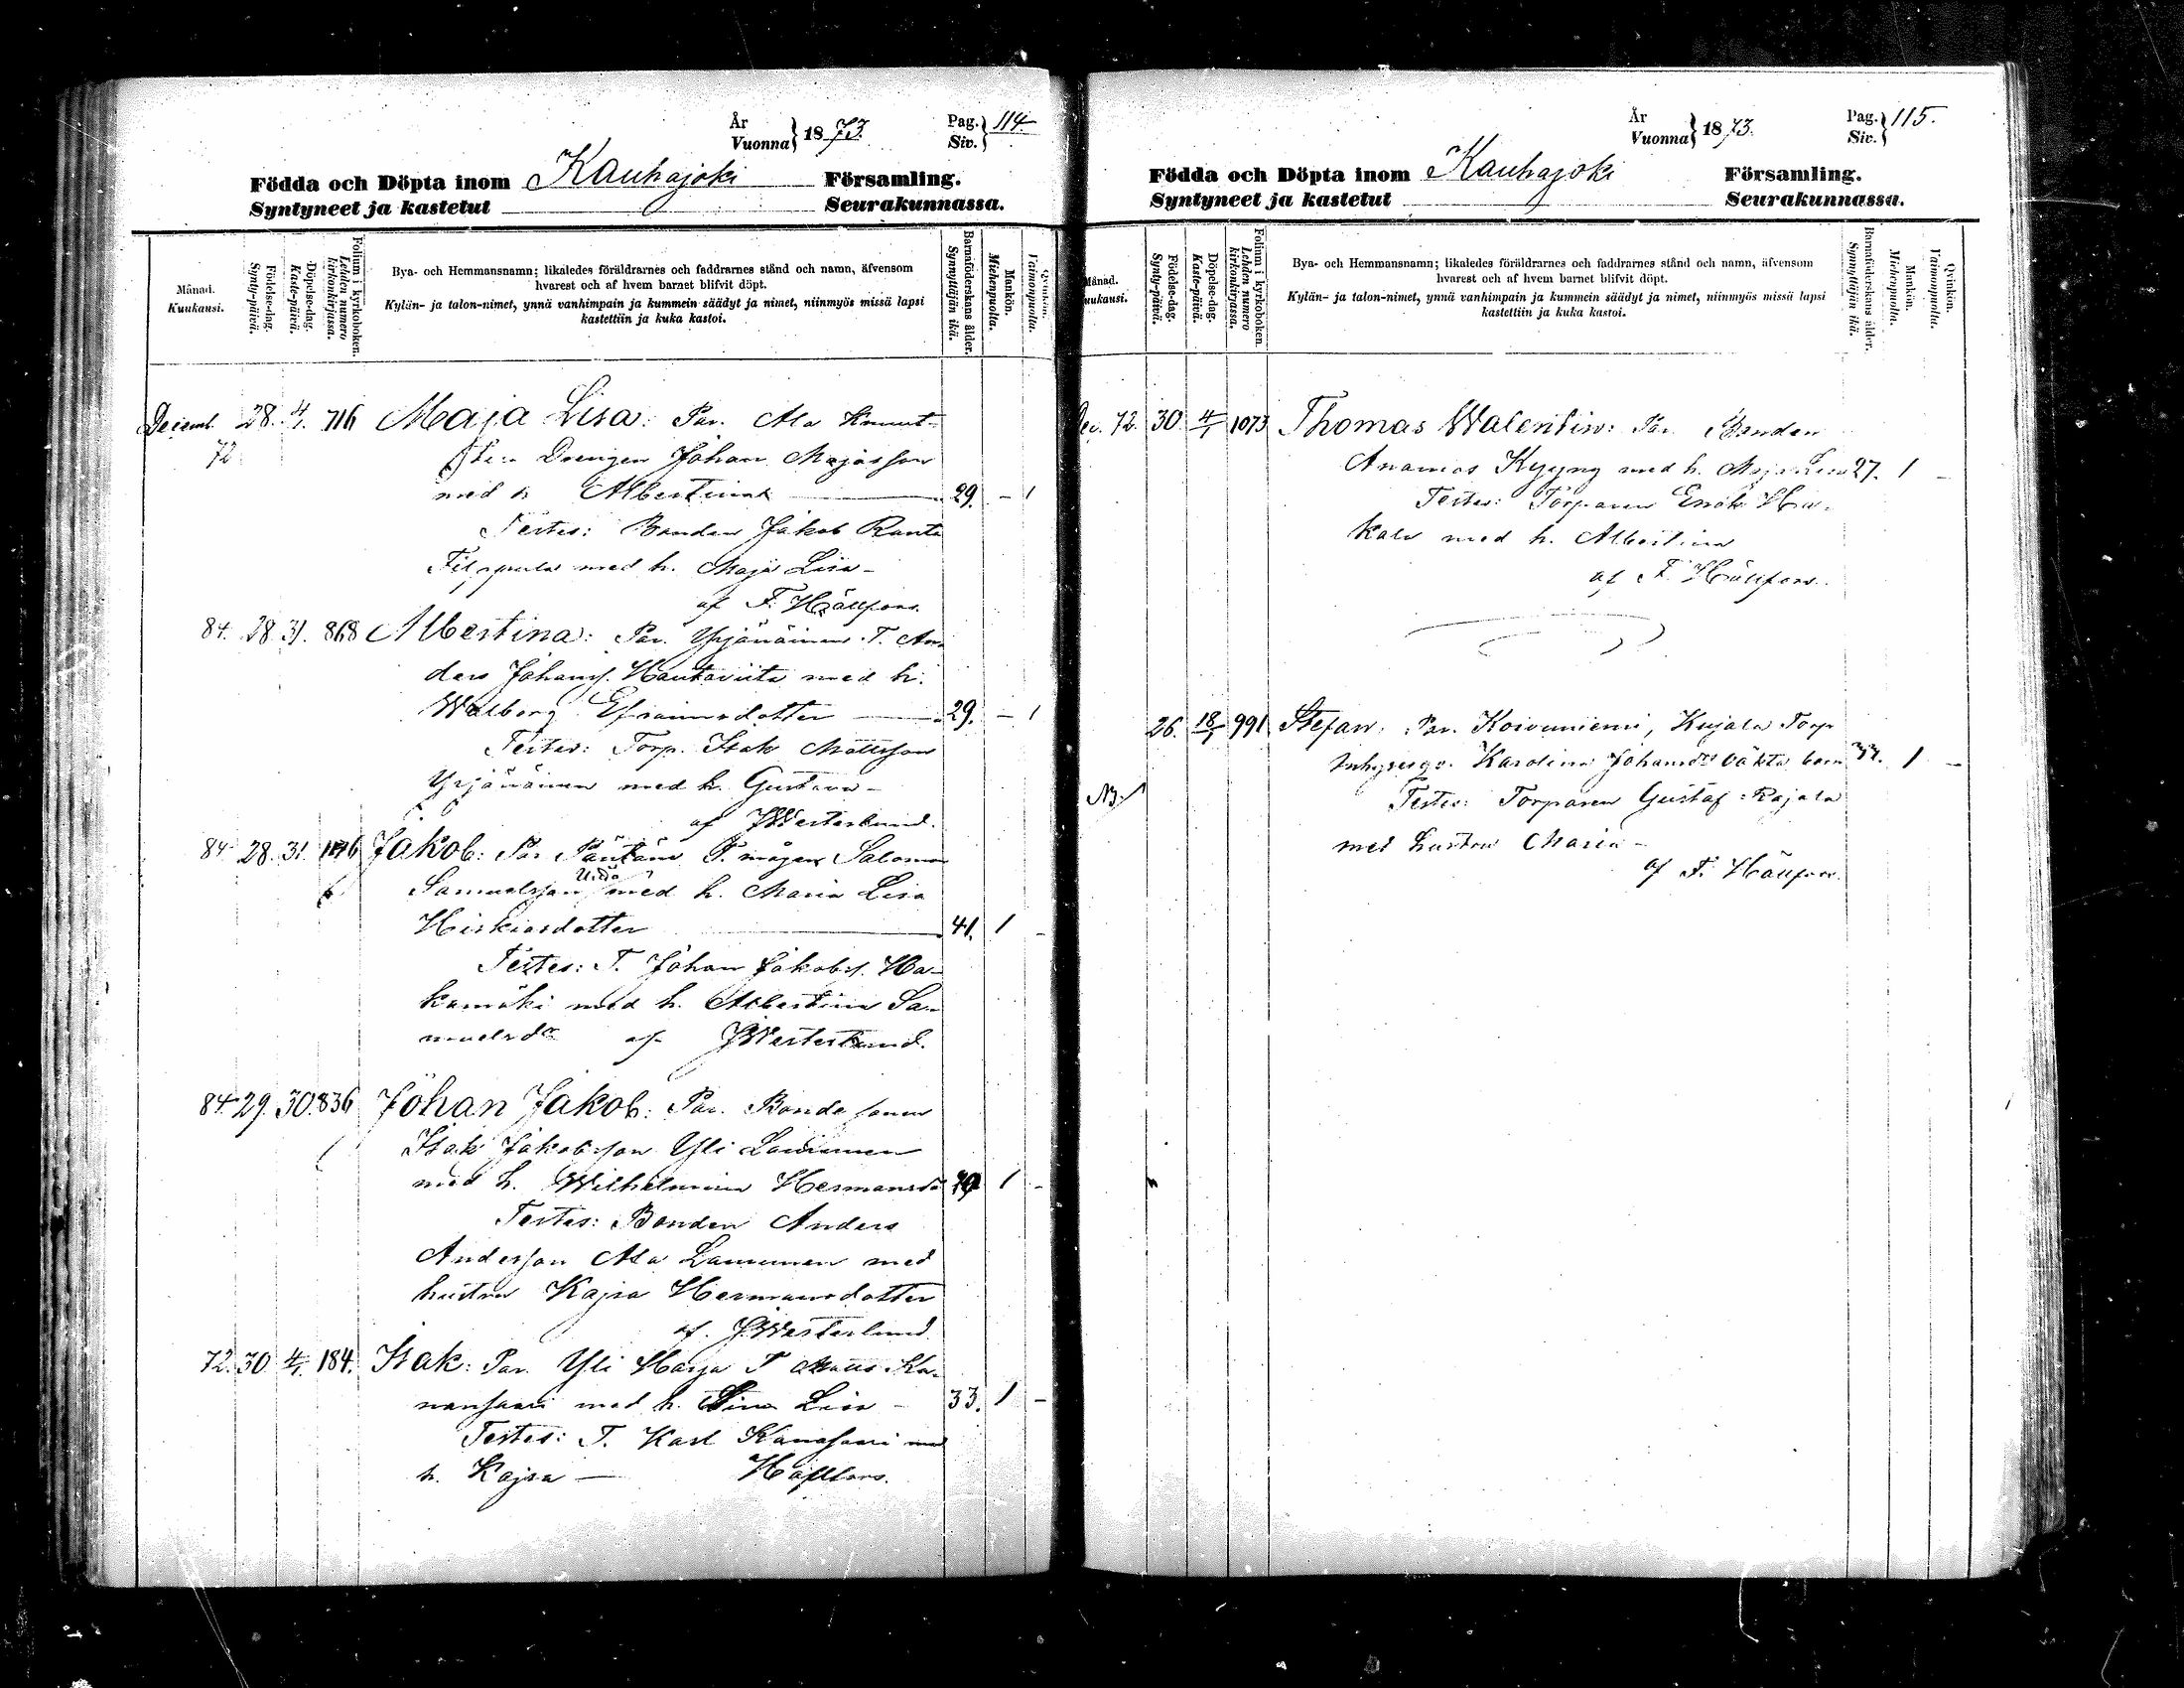 År
Vuonna } 1873.
Pag.
Siv. } 114
Födda och Döpta inom Kauhajoki Församling.
Syntyneet ja kastetut Seurakunnassa.
Månad.
Kuukausi.
Födelse-dag.
Synty-päivä.
Döpelse-dag.
Kaste-päivä.
Folium i kyrkoboken.
Lehden numero kirkonkirjassa.
Bya- och Hemmansnamn; likaledes föräldrarnes och faddrarnes stånd och namn, äfvensom
hvarest och af hvem barnet blifvit döpt.
Kylän- ja talon-nimet, ynnä vanhimpain ja kummein säädyt ja nimet, niinmyös missä lapsi
kastettiin ja kuka kastoi.
Barnföderskans ålder.
Synnyttäjän ikä.
Mankön.
Miehenpuolta.
Qvinkön.
Vaimonpuolta.
Decemb. 28. 4/1. 716 Maja Lisa: Par. Ala Knuut-
72 Drengen Johan Majasson
med h Albertina 29. - 1
Testes: Bonden Jakob Ranta
med h. Maja Lisa-
af F. Hällfors.
84. 28. 31. 868 Albertina: Par. Yrjänäinen T. An-
ders Johanss. Hautaviita med h.
Walborg Efraimsdotter 29. - 1
Testes: Torp. Isak Mattsson
Yrjänäinen med h. Gustava-
af JWesterlund.
84 28. 31. Jakob: Par Päntäne T. mågen Salomon
Samuelsson med h. Maria Lisa
Hiskiasdotter 41. 1 -
Testes: T. Johan Jakobss. Ha-
kamäki med h. Albertina Sa-
muelsdr af JWesterlund.
84 29. 30. 836 Johan Jakob: Par. Bonde sonen
Isak Jakobsson Yli Lauvunen
med h. Wilhelmina Hermansdr 1 -
Testes: Bonden Anders
Andersson Ala Lauvunen med
hustru Kajsa Hermansdotter
af. JWesterlund.
72. 30 4/1. 184. Isak: Par. Yli Harja T Matts Ka-
nansaari med h. Lisa - 33. 1 -
Testes: T. Karl Kanasaari med
h. Kajsa - Hällfors.
År
Vuonna } 1873.
Pag.
Siv. } 115.
Födda och Döpta inom Kauhajoki Församling.
Syntyneet ja kastetut Seurakunnassa.
Månad.
Kuukausi.
Födelse-dag.
Synty-päivä.
Döpelse-dag.
Kaste-päivä.
Folium i kyrkoboken.
Lehden numero kirkonkirjassa.
Bya- och Hemmansnamn; likaledes föräldrarnes och faddrarnes stånd och namn, äfvensom
hvarest och af hvem barnet blifvit döpt.
Kylän- ja talon-nimet, ynnä vanhimpain ja kummein säädyt ja nimet, niinmyös missä lapsi
kastettiin ja kuka kastoi.
Barnföderskans ålder.
Synyttäjän ikä.
Mankön.
Miehenpuolta.
Qvinkön.
Vaimonpuolta.
Dec. 72. 30 4/1 1073 Thomas Walentin: Par. Bonden
Ananias Kyyny med h. Maja Lisa 27. 1 -
Testes: Torparen Enok
med h. Albertina
af F. Hällfors.
26. 18/1 991 Stefan: Par. Koivuniemi, Kujala Torp
Inhysesqv. Karolina Johansdr oäkta barn 1 -
NB:
Testes: Torparen Gustaf Rajala
med hustru Maria-
af F. Hällfors.